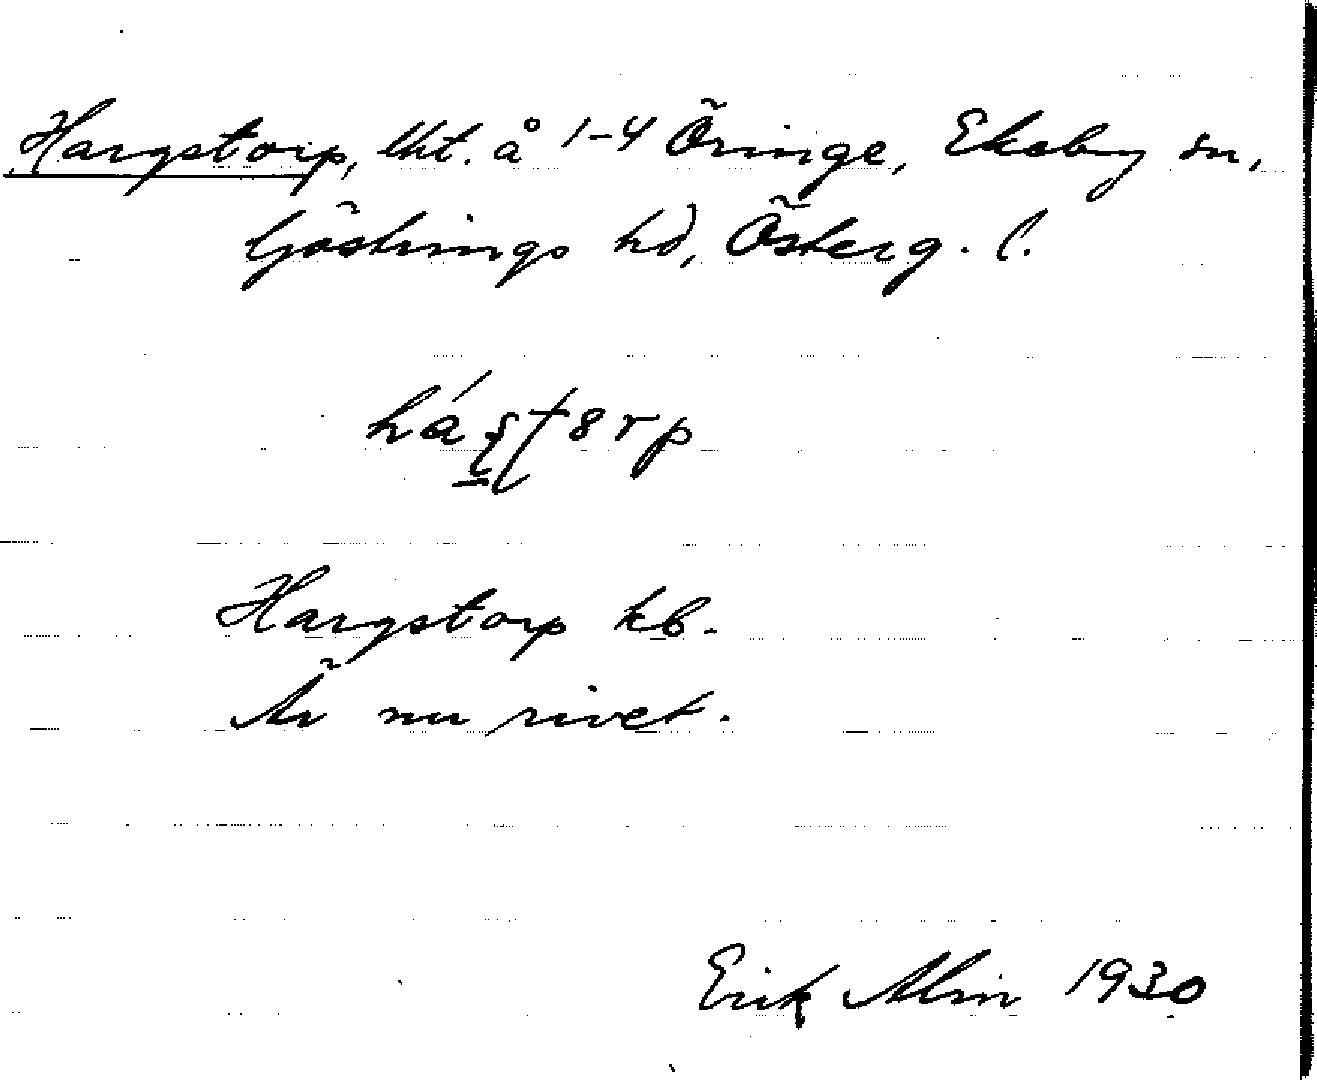 Hargstorp, lht. å 1-4 Öringe, Ekeby sn,
Göstrings hd, Österg. l.
Hargstorp kb.
Är nu rivet.
Erik Alm 1930